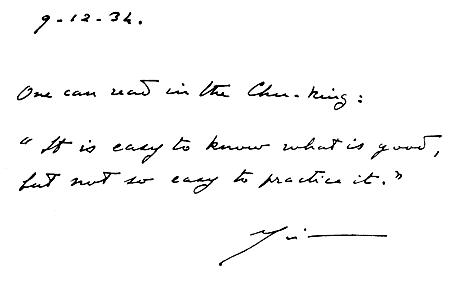 9-12-34.
One can read in the Chu-King:
"It is easy to know what is good,
but not so easy to practice it."